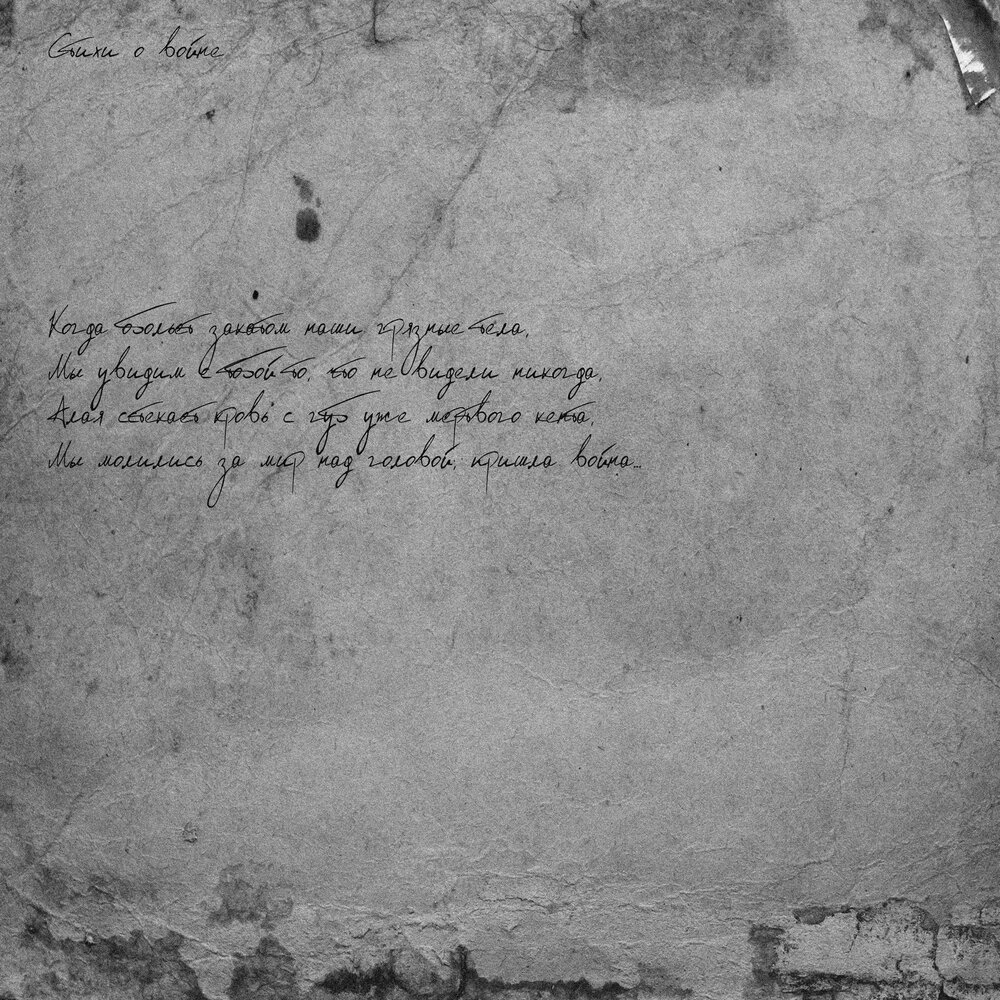 Стихи о войне
Когда обольёт закатом наши грязные тела,
Мы увидим с тобой то, что не видели никогда,
Алая стекает кровь с губ уже мертвого кента,
Мы молились за мир над головой, пришла война...